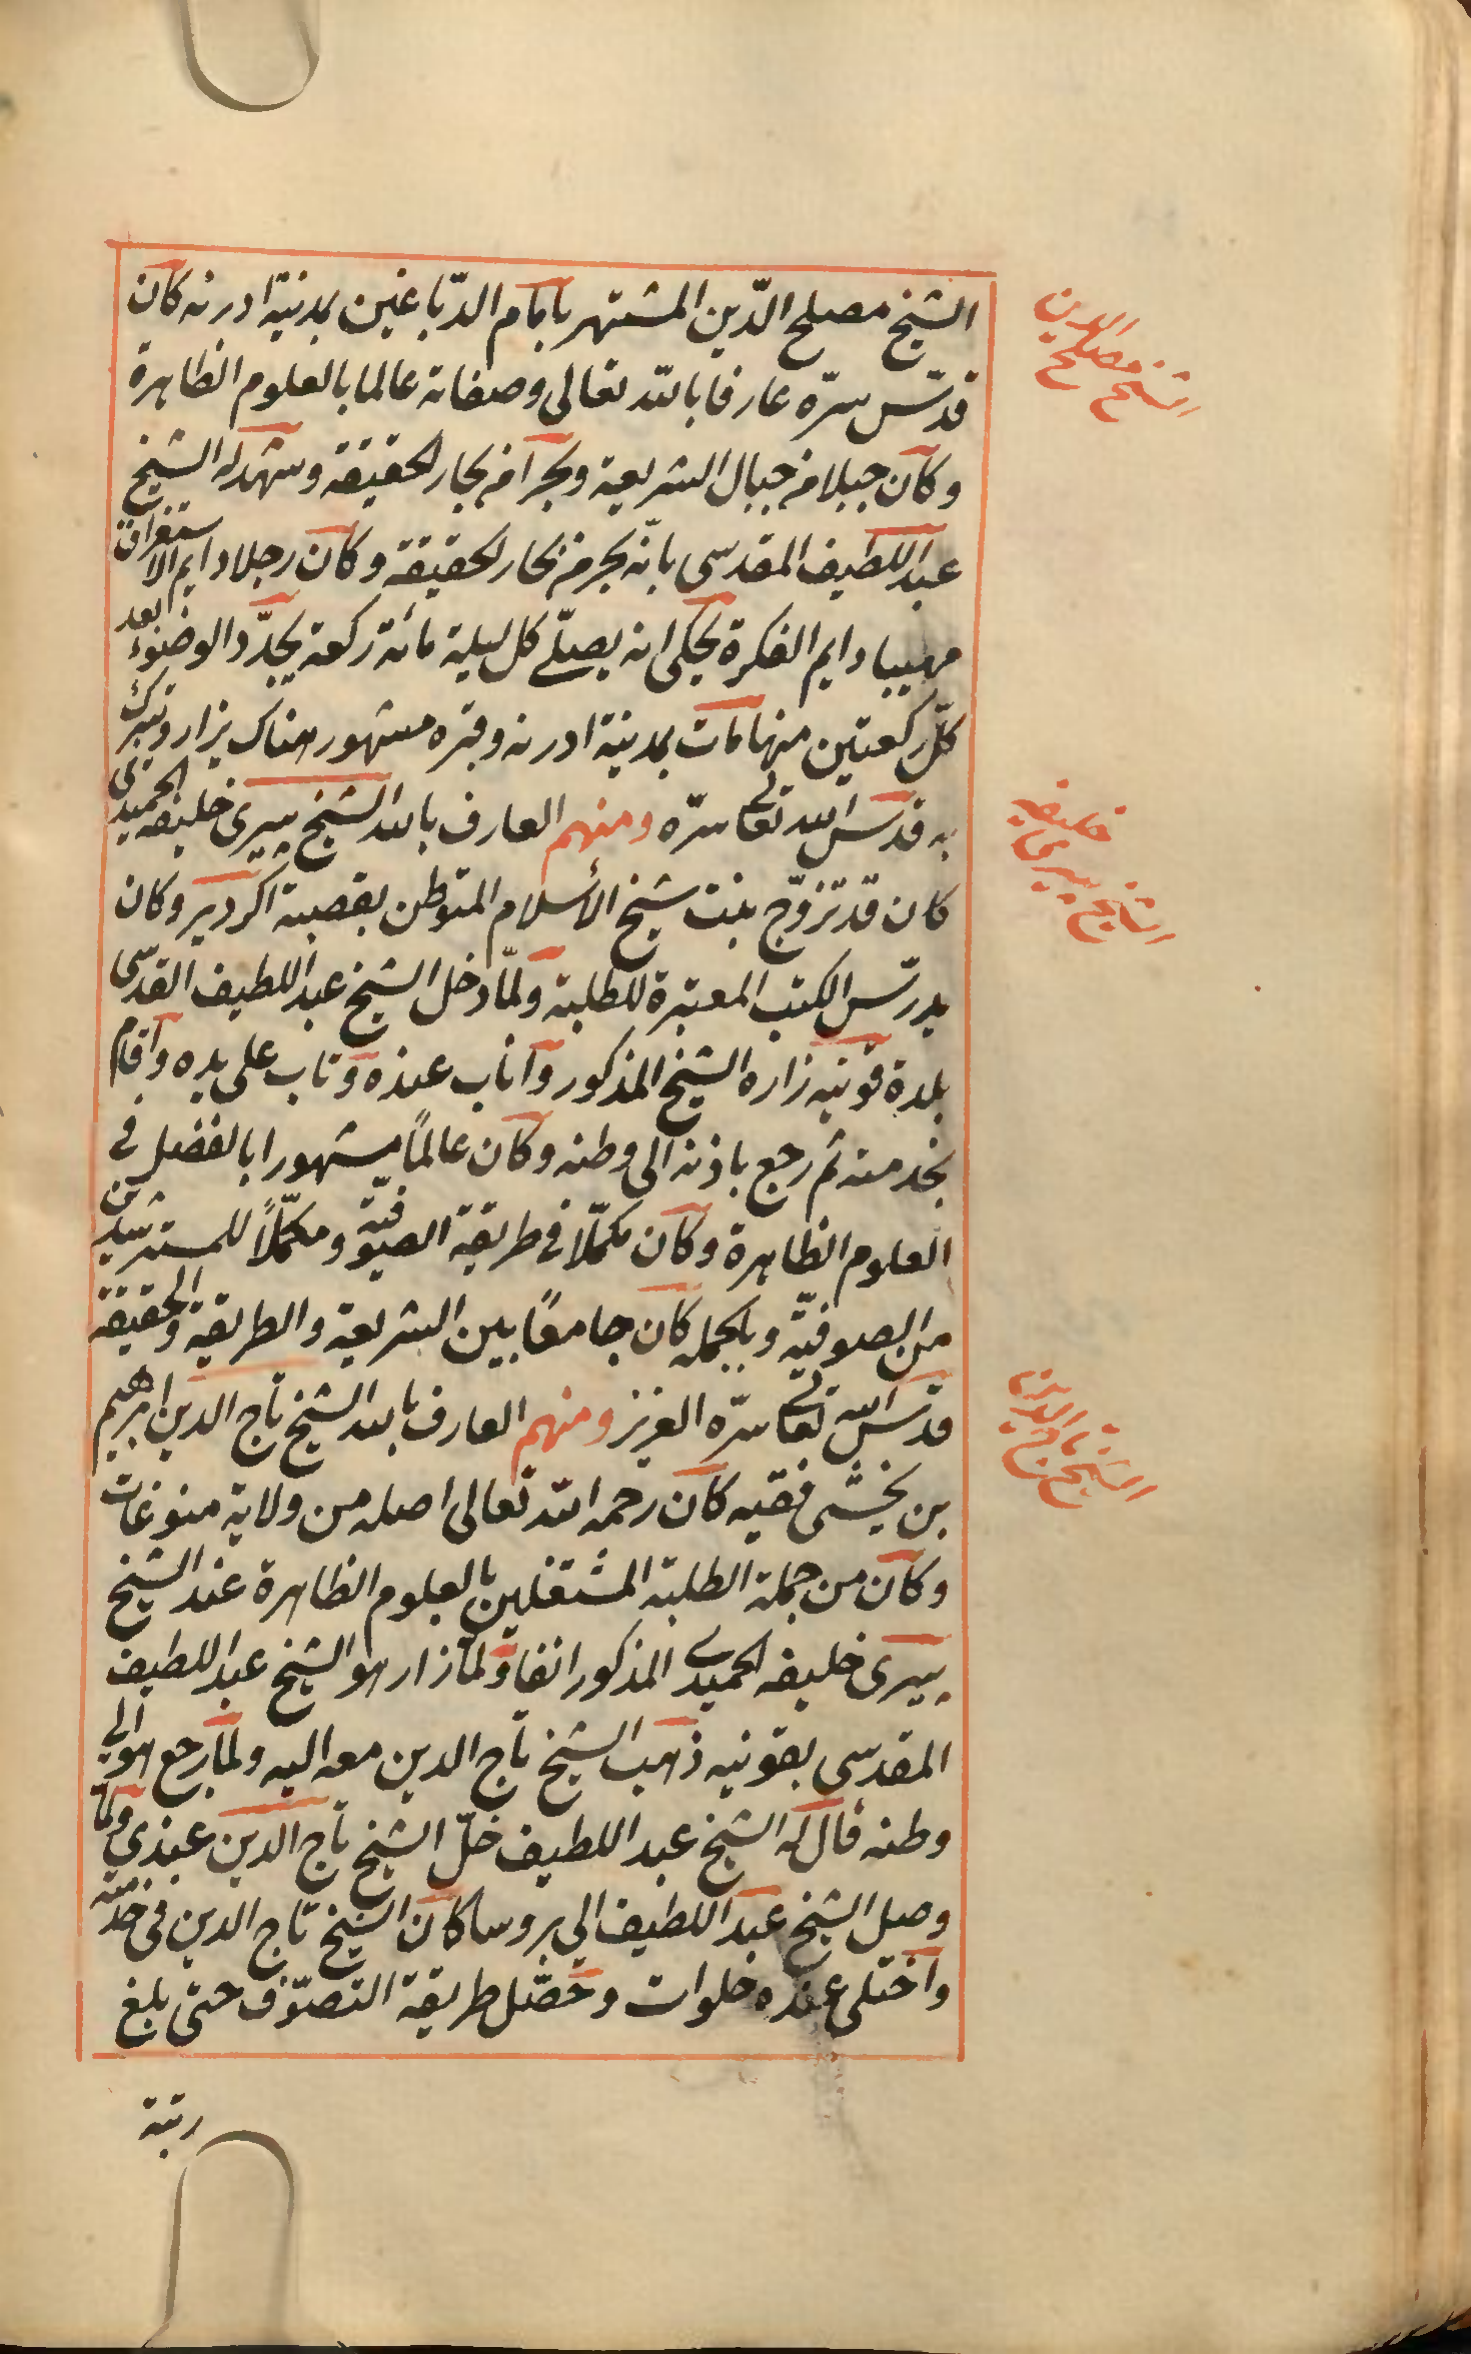 الشيخ مصلح الدّين المشتهر بامام الدبّاغين بمدينة ادرنه كان
قدّس سرّه عارفا بالله تعالى وصفاته عالما بالعلوم الظاهرة
وكان جبلا من جبال الشريعة وبحرا من بحار الحقيقة وشهد له الشيخ
عبد اللطيف المقدسى بانّه بحر من بحار الحقيقة وكان رجلا دايم الاستغراق
مهيبا دايم الفكرة يحكى انه يصلّى كل ليلة مائة ركعة يجدّد الوضوء بعد
كلّ ركعتين منها مات بمدينة ادرنه وقبره مشهور هناك يزار ويتبرك
به قدّس الله تعالى سرّه ومنهم العارف بالله الشيخ پيرى خليفه الحميدى
كان قد تزوّج بنت شيخ الأسلام المتوطن بقصبة اكردير وكان
يدرّس الكتب المعتبرة للطلبة ولمّا دخل الشيخ عبد اللطيف القدسى
بلدة قونيه زاره الشيخ المذكور واناب عنده وتاب على يده واقام
بخدمته ثم رجع باذنه الى وطنه وكان عالمًا مشهورا بالفضل فى
العلوم الظاهرة وكان مكمّلا فى طريقة الصوفيّة ومكمّلاً للمسترشدين
من الصوفيّة وبالجمله كان جامعًا بين الشريعة والطريقة والحقيقة
قدّس الله تعالى سرّه العزيز ومنهم العارف بالله الشيخ تاج الدين ابرهيم
بن يخشى فقيه كان رحمه الله تعالى اصله من ولاية منوغات
وكان من جملة الطلبة المشتغلين بالعلوم الظاهرة عند الشيخ
پيرى خليفه الحميدى المذكور انفا ولمّا زار هو الشيخ عبد اللطيف
المقدسى بقونيه ذهب الشيخ تاج الدين معه اليه ولمّا رجع هو الى
وطنه قال له الشيخ عبد اللطيف خلّ الشيخ تاج الدين عندى ولمّا
وصل الشيخ عبد اللطيف الى بروسا كان الشيخ تاج الدين فى خدمته
واختلى عنده خلوات وحصّل طريقة التصوّف حتى بلغ
رتبة
الشيخ مصلح الدين
الشيخ پيرى خليفه
الشيخ تاج الدين